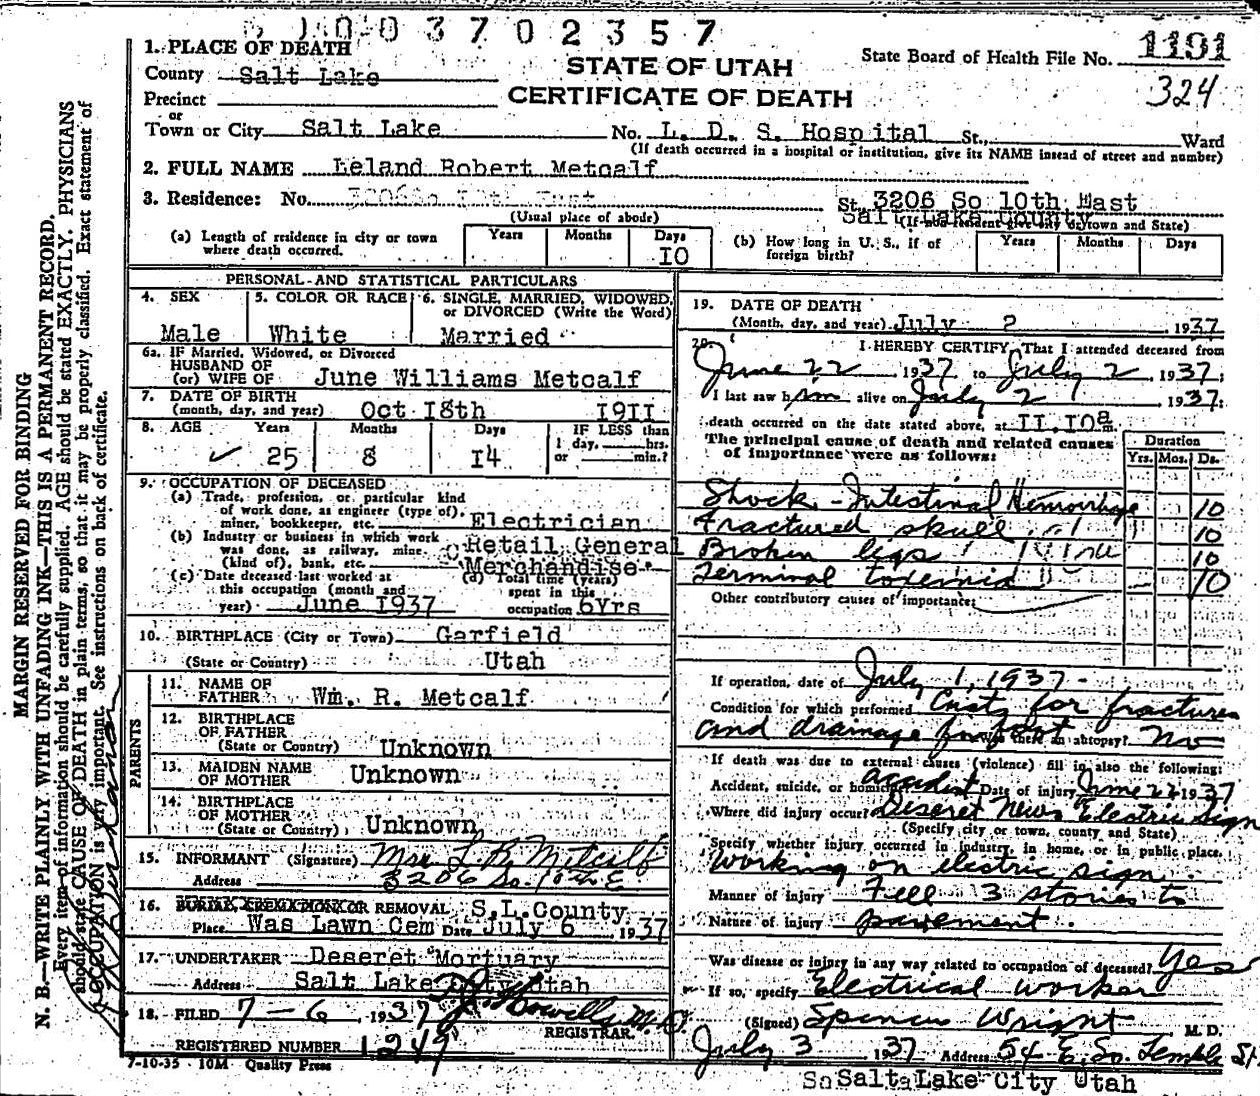 003702357
1. PLACE OF DEATH
County Salt Lake
STATE OF UTAH
State Board of Health File No. 1191
Precinct
CERTIFICATE OF DEATH
324
or
Town or City Salt Lake No. L. D. S. Hospital St., Ward
(If death occurred in a hospital or institution, give its NAME instead of street and number)
2. FULL NAME Leland Robert Metcalf
3. Residence: No. St. 3206 So 10th East
Salt Lake County
(Usual place of abode)
(If non-resident give city or town and State)
(a) Length of residence in city or town where death occurred. Years Months Days 10
(b) How long in U. S., if of foreign birth? Years Months Days
PERSONAL AND STATISTICAL PARTICULARS
4. SEX Male
5. COLOR OR RACE White
6. SINGLE, MARRIED, WIDOWED, or DIVORCED (Write the Word) Married
6a. IF Married, Widowed, or Divorced
HUSBAND OF
(or) WIFE OF June Williams Metcalf
7. DATE OF BIRTH
(month, day, and year) Oct 18th 1911
8. AGE Years Months Days IF LESS than
1 day, hrs.
or min.?
✓ 25 8 14
9. OCCUPATION OF DECEASED
(a) Trade, profession, or particular kind
of work done, as engineer (type of),
miner, bookkeeper, etc. Electrician
(b) Industry or business in which work
was done, as railway, mine,
(kind of), bank, etc. Retail General
Merchandise
(c) Date deceased last worked at
this occupation (month and
year) June 1937
(d) Total time (years)
spent in this
occupation 6Yrs
10. BIRTHPLACE (City or Town) Garfield
(State or Country) Utah
PARENTS
11. NAME OF
FATHER Wm. R. Metcalf
12. BIRTHPLACE
OF FATHER
(State or Country) Unknown
13. MAIDEN NAME
OF MOTHER Unknown
14. BIRTHPLACE
OF MOTHER
(State or Country) Unknown
15. INFORMANT (Signature) Mrs L. R. Metcalf
Address 3206 So. 10th E
16. BURIAL, CREMATION OR REMOVAL S.L.County
Place Was Lawn Cem Date July 6 1937
17. UNDERTAKER Deseret Mortuary
Address Salt Lake City Utah
18. FILED 7-6, 1937
REGISTRAR.
REGISTERED NUMBER 1249
7-10-35 10M Quality Press
19. DATE OF DEATH
(Month, day, and year) July 2 1937
20. I HEREBY CERTIFY, That I attended deceased from
June 22 1937 to July 2, 1937;
I last saw him alive on July 2, 1937;
death occurred on the date stated above, at 11.10a m.
The principal cause of death and related causes
of importance were as follows:
Duration
Yrs. Mos. Ds.
Shock - Intestinal Hemorrhage 10
Fractured skull 10
Broken legs 10
Terminal toxemia 10
Other contributory causes of importance:
If operation, date of July 1, 1937
Condition for which performed Casts for fractures
and drainage for foot Was there an autopsy? No
If death was due to external causes (violence) fill in also the following:
Accident, suicide, or homicide accident Date of injury June 22 1937
Where did injury occur? Deseret News Electric Sign
(Specify city or town, county and State)
Specify whether injury occurred in industry, in home, or in public place.
Working on electric sign.
Manner of injury Fell 3 stories to
Nature of injury pavement.
Was disease or injury in any way related to occupation of deceased? Yes
If so, specify Electrical worker
(Signed) Spencer Wright M. D.
July 3 1937 Address 54 E. So. Temple St.
Salt Lake City Utah
MARGIN RESERVED FOR BINDING
N. B.—WRITE PLAINLY WITH UNFADING INK—THIS IS A PERMANENT RECORD.
Every item of information should be carefully supplied. AGE should be stated EXACTLY. PHYSICIANS
should state CAUSE OF DEATH in plain terms, so that it may be properly classified. Exact statement of
OCCUPATION is very important. See instructions on back of certificate.